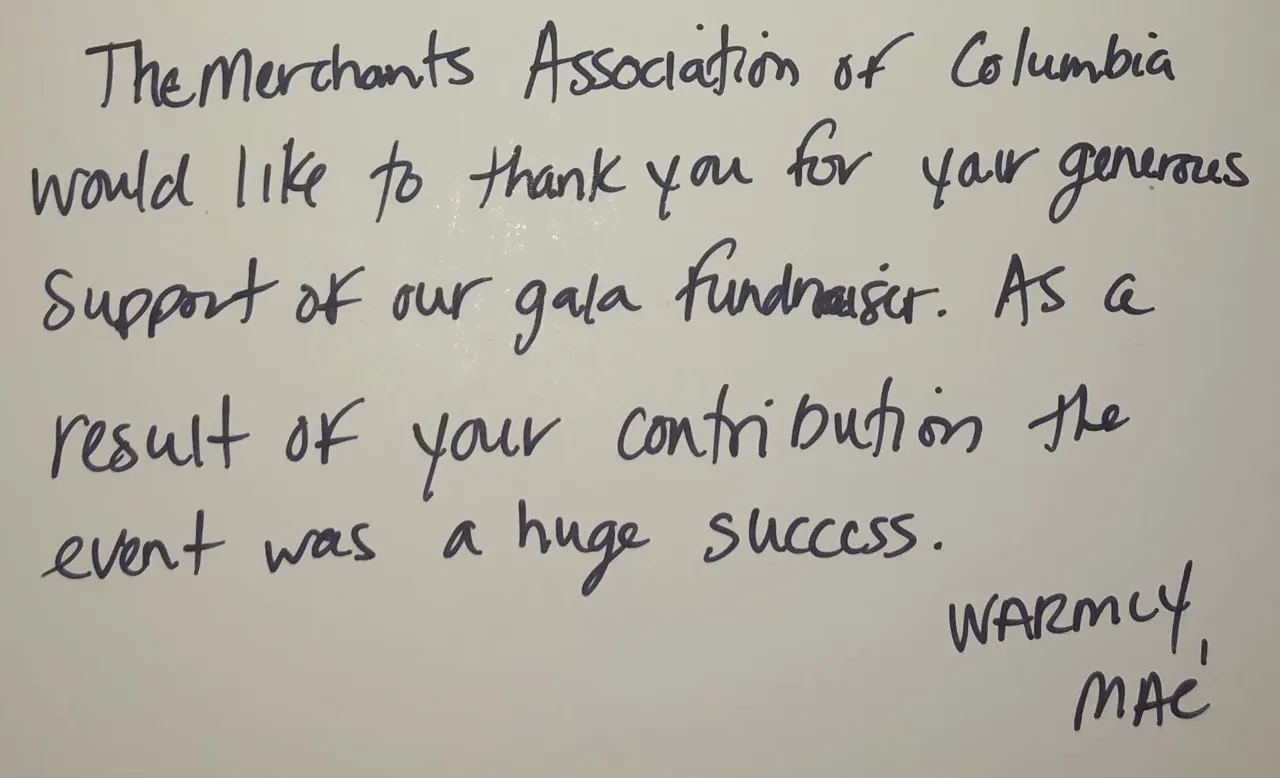 The Merchants Association of Columbia
would like to thank you for your generous
support of our gala fundraiser. As a
result of your contribution the
event was a huge success.
WARMLY,
MAC